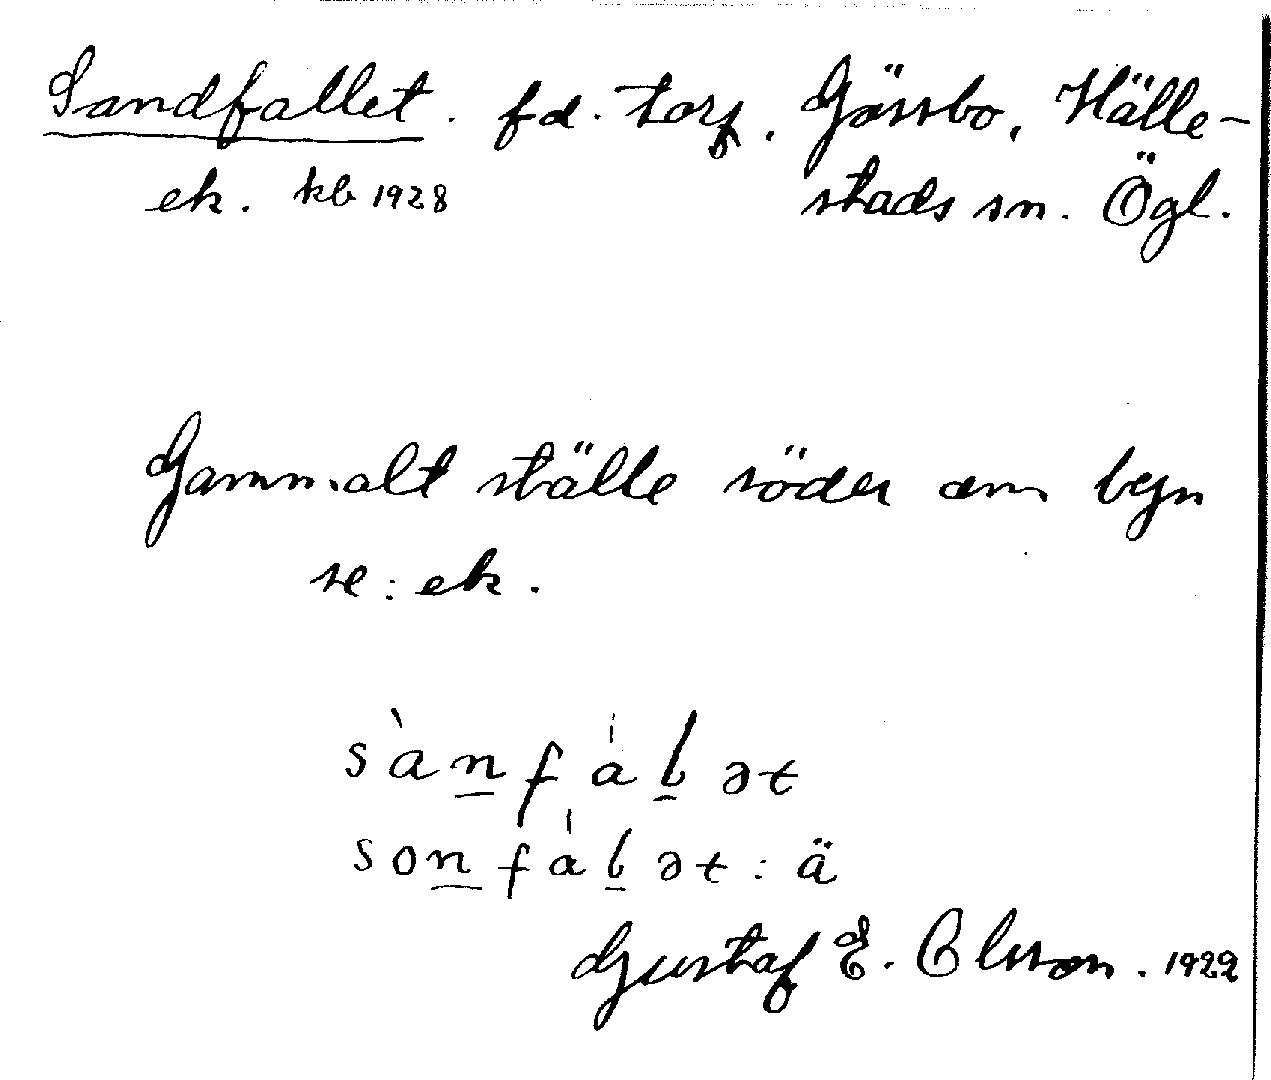 Sandfallet. fd. torp. Gässbo, Hälle-
ek. kb 1928 stads sn. Ögl.
Gammalt ställe söder om byn
se: ek.
sànfálət
sonfálət: ä
Gustaf E. Olsson. 1922